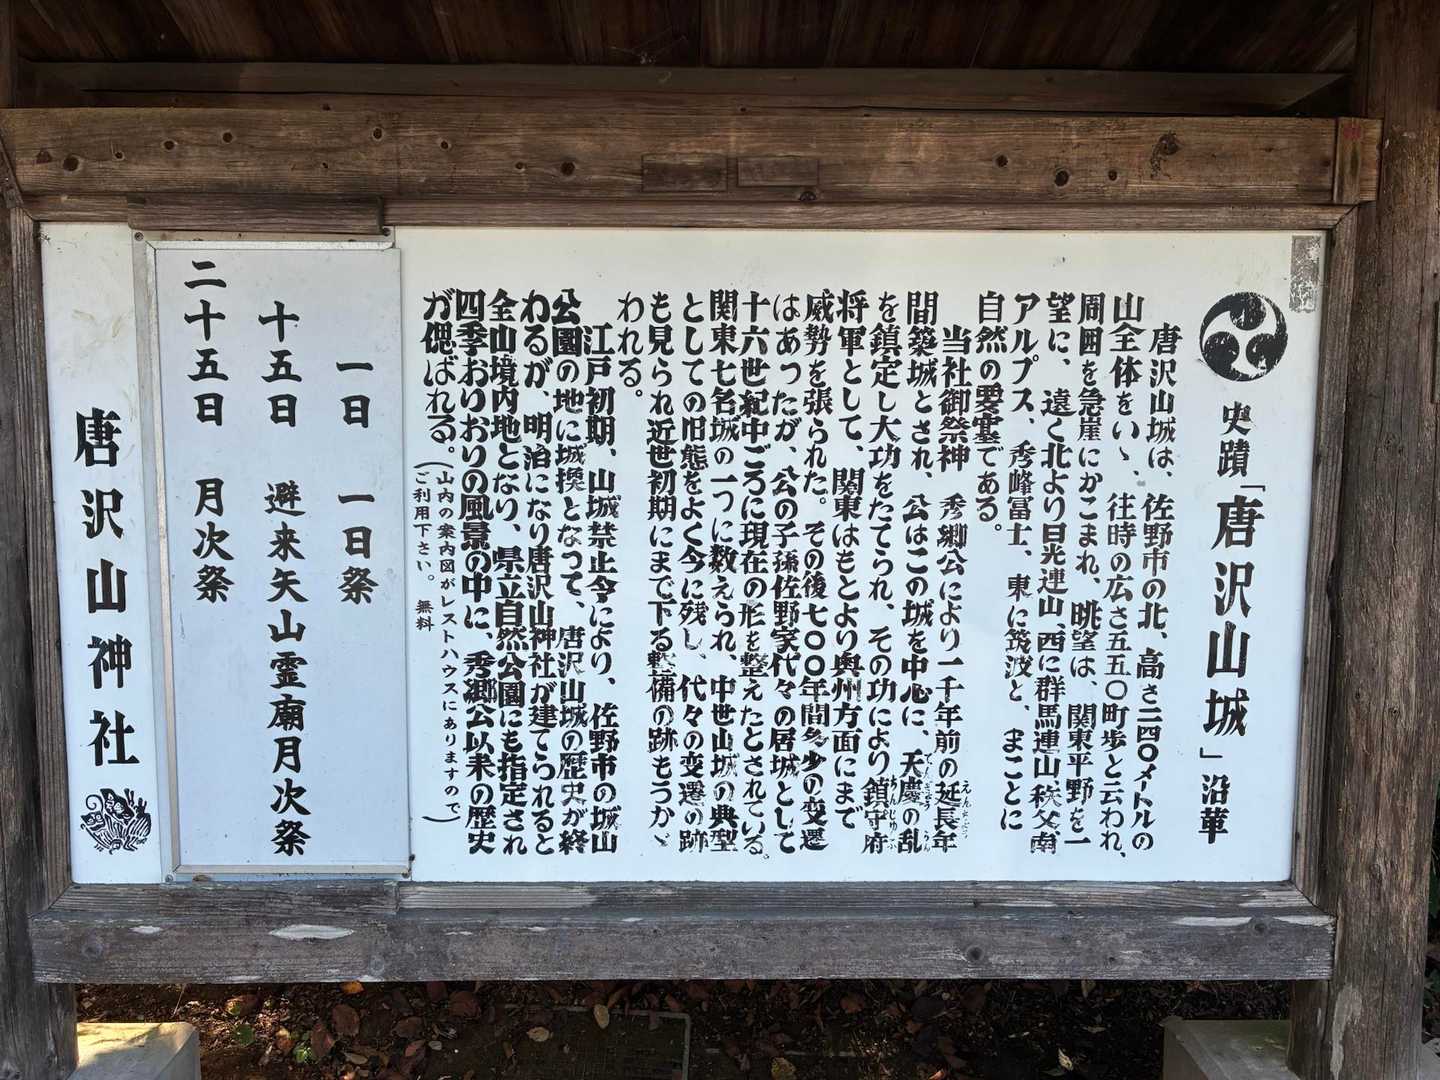 史蹟「唐沢山城」沿革
唐沢山城は、佐野市の北、高さ二四〇メートルの
山全体をいゝ、往時の広さ五五〇町歩と云われ、
周囲を急崖にかこまれ、眺望は、関東平野を一
望に、遠く北より日光連山、西に群馬連山、秩父南
アルプス、秀峰富士、東に筑波と、まことに
自然の要塞である。
当社御祭神 秀郷公により一千年前の延長年
えんちょう
間築城とされ、公はこの城を中心に、天慶の乱
てんぎょう らん
を鎮定し大功をたてられ、その功により鎮守府
ちんじゅふ
将軍として、関東はもとより奥州方面にまで
威勢を張られた。その後七〇〇年間多少の変遷
はあったが、公の子孫佐野家代々の居城として
十六世紀中ごろに現在の形を整えたとされている。
関東七名城の一つに数えられ、中世山城の典型
としての旧態をよく今に残し、代々の変遷の跡
も見られ近世初期にまで下る整備の跡もうかゞ
われる。
江戸初期、山城禁止令により、佐野市の城山
公園の地に城換となって、唐沢山城の歴史が終
わるが、明治になり唐沢山神社が建てられると
全山境内地となり、県立自然公園にも指定され
四季おりおりの風景の中に、秀郷公以来の歴史
が偲ばれる。
(山内の案内図がレストハウスにありますので
ご利用下さい。 無料)
一日 一日祭
十五日 避来矢山霊廟月次祭
二十五日 月次祭
唐沢山神社